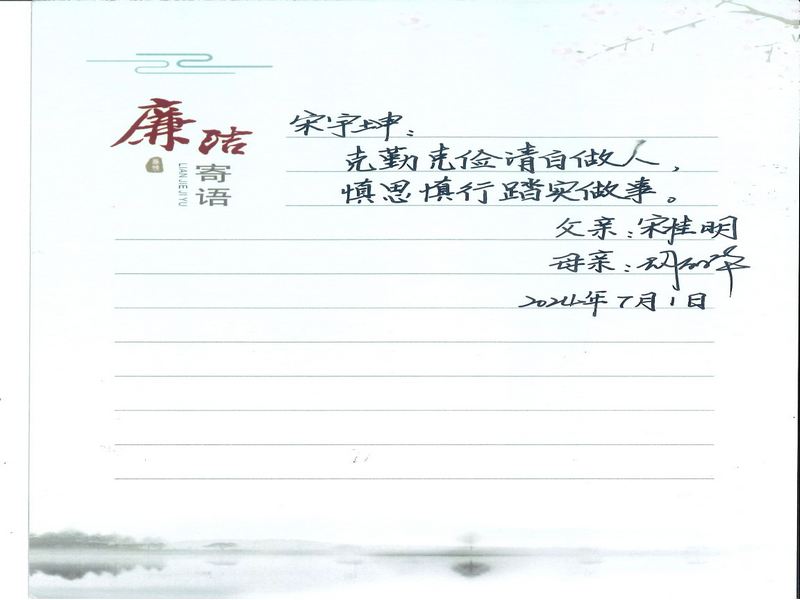 廉洁
寄语
LIANJIEJIYU
宋宇坤：
克勤克俭清白做人，
慎思慎行踏实做事。
父亲：宋桂明
母亲：
2024年7月1日